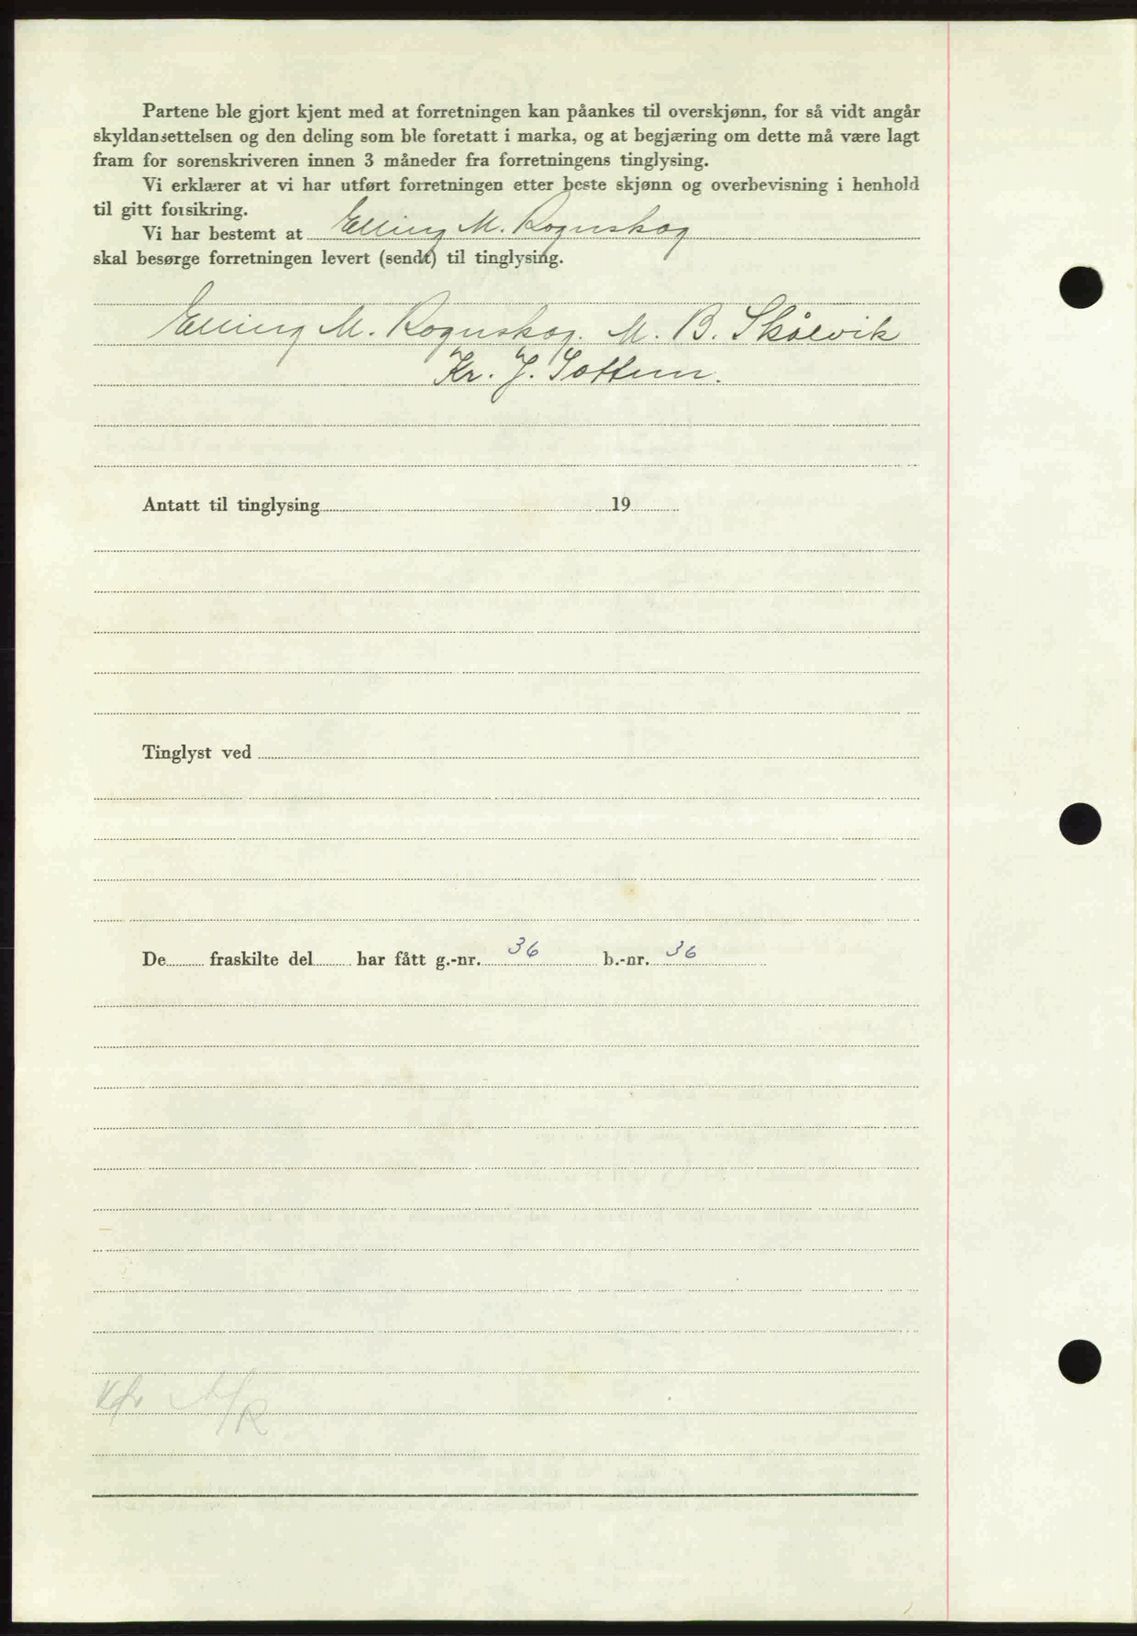 Partene ble gjort kjent med at forretningen kan påankes til overskjønn, for så vidt angår
skyldansettelsen og den deling som ble foretatt i marka, og at begjæring om dette må være lagt
fram for sorenskriveren innen 3 måneder fra forretningens tinglysing.
Vi erklærer at vi har utført forretningen etter beste skjønn og overbevisning i henhold
til gitt forsikring.
Vi har bestemt at Elling M. Rognskog
skal besørge forretningen levert (sendt) til tinglysing.
Elling M. Rognskog. M. B. Skålvik
Kr. J. Søttem.
Antatt til tinglysing 19
Tinglyst ved
De fraskilte del har fått g.-nr. 36 b.-nr. 36
Kfr